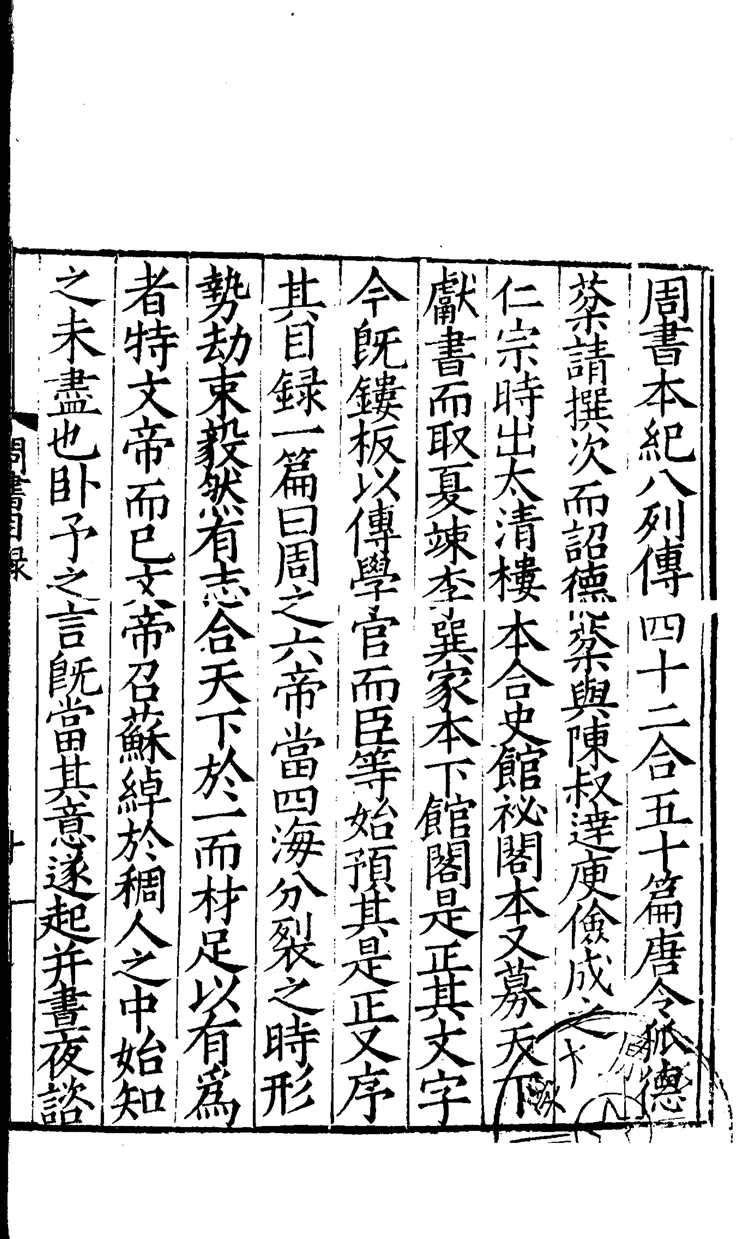 周書本紀八列傳四十二合五十篇唐令狐德
棻請撰次而詔德棻與陳叔達庾儉成之
仁宗時出太清樓本合史館祕閣本又募天下
獻書而取夏竦李巽家本下館閣是正其文字
今旣鏤板以傳學官而臣等始預其是正又序
其目録一篇曰周之六帝當四海分裂之時形
勢劫束毅然有志合天下於一而材足以有爲
者特文帝而已文帝召蘇綽於稠人之中始知
之未盡也卧予之言旣當其意遂起并晝夜諮
周書目録